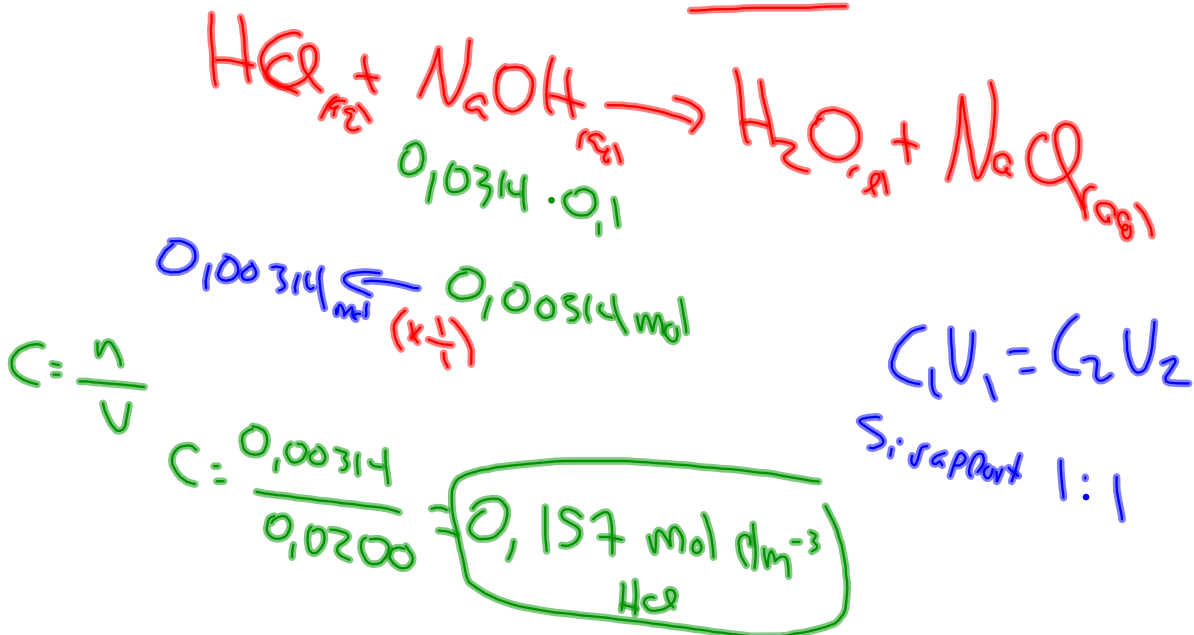 HCl(aq) + NaOH(aq) → H₂O(l) + NaCl(aq)
0,0314 · 0,1
0,00314 mol ← 0,00314 mol
(x 1/1)
C = n/V
C₁V₁ = C₂V₂
Si rapport 1:1
C = 0,00314/0,0200 = 0,157 mol dm⁻³
HCl